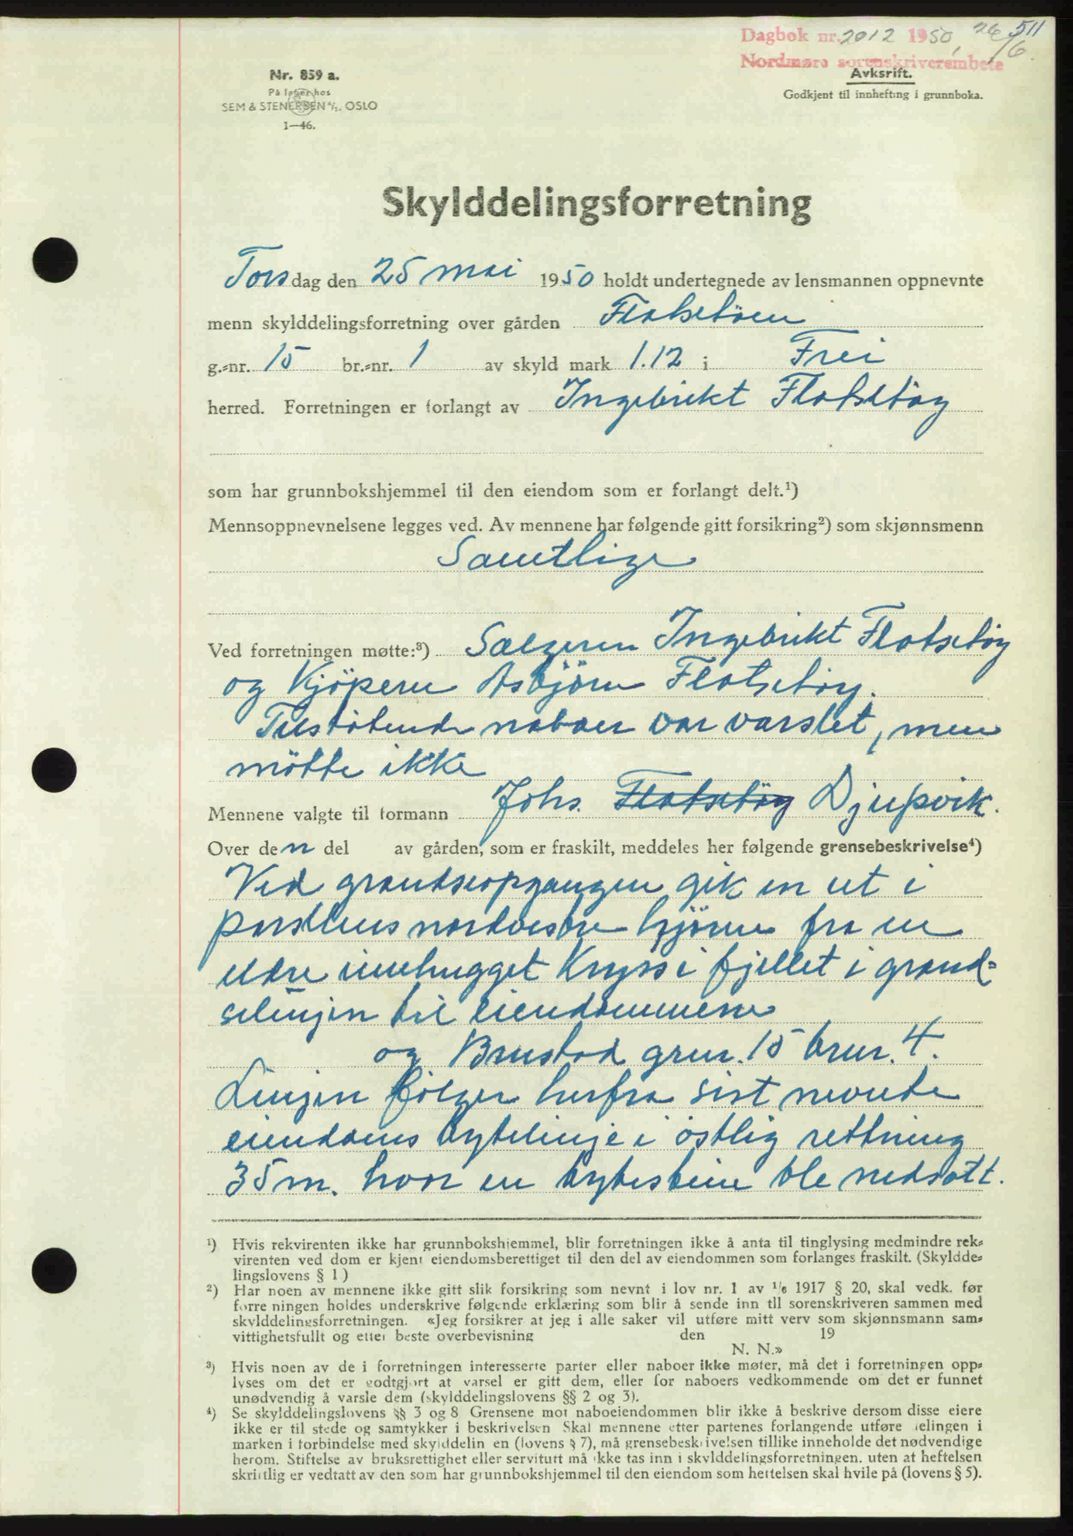 Dagbok nr. 2012 1950, 26/6 511
Nordmøre sorenskriverembete
Avksrift.
Godkjent til innhefting i grunnboka.
Nr. 859 a.
På lager hos
SEM & STENERSEN A/S. OSLO
1—46.
Skylddelingsforretning
Torsdag den 25 mai 1950 holdt undertegnede av lensmannen oppnevnte
menn skylddelingsforretning over gården Flatsetöen
g.=nr. 15 br.=nr. 1 av skyld mark 1.12 i Frei
herred. Forretningen er forlangt av Ingebrikt Flatsetöy
som har grunnbokshjemmel til den eiendom som er forlangt delt.¹)
Mennsoppnevnelsene legges ved. Av mennene har følgende gitt forsikring²) som skjønnsmenn
Samtlige
Ved forretningen møtte:³) Sælgeren Ingebrikt Flatsetöy
og Kjöperen Asbjörn Flatsetöy.
Tilstötende naboer var varslet, men
mötte ikke
Mennene valgte til formann Johs. Flatsetöy Djupvik.
Over den del av gården, som er fraskilt, meddeles her følgende grensebeskrivelse⁴)
Ved grandseopgangen gik en ut i
parsellens nordvestre hjörne fra en
eldre innhugget Kryss i fjellet i grand=
selinjen til eiendommene
og Brustad grnr. 15 brnr. 4.
Linjen fölger herfra sist nevnte
eiendoms bytelinje i östlig rettning
35 m. hvor en bytestein ble nedsatt.
¹) Hvis rekvirenten ikke har grunnbokshjemmel, blir forretningen ikke å anta til tinglysing medmindre rek=
virenten ved dom er kjent eiendomsberettiget til den del av eiendommen som forlanges fraskilt. (Skyldde=
lingslovens § 1)
²) Har noen av mennene ikke gitt slik forsikring som nevnt i lov nr. 1 av 1/6 1917 § 20, skal vedk. før
forretningen holdes underskrive følgende erklæring som blir å sende inn til sorenskriveren sammen med
skylddelingsforretningen. «Jeg forsikrer at jeg i alle saker vil utføre mitt verv som skjønnsmann sam=
vittighetsfullt og etter beste overbevisning den 19
N. N.»
³) Hvis noen av de i forretningen interesserte parter eller naboer ikke møter, må det i forretningen opp=
lyses om det er godtgjort at varsel er gitt dem, eller for naboers vedkommende om det er funnet
unødvendig å varsle dem (skylddelingslovens §§ 2 og 3).
⁴) Se skylddelingslovens §§ 3 og 8 Grensene mot naboeiendommen blir ikke å beskrive dersom disse eiere
ikke er til stede og samtykker i beskrivelsen Skal mennene etter partenes forlangende utføre delingen i
marken i forbindelse med skylddelingen (lovens § 7), må grensebeskrivelsen tillike inneholde det nødvendige
herom. Stiftelse av bruksrettighet eller servitutt må ikke tas inn i skylddelingsforretningen, uten at heftelsen
skriftlig er vedtatt av den som har grunnbokshjemmel til den eiendom som heftelsen skal hvile på (lovens § 5).